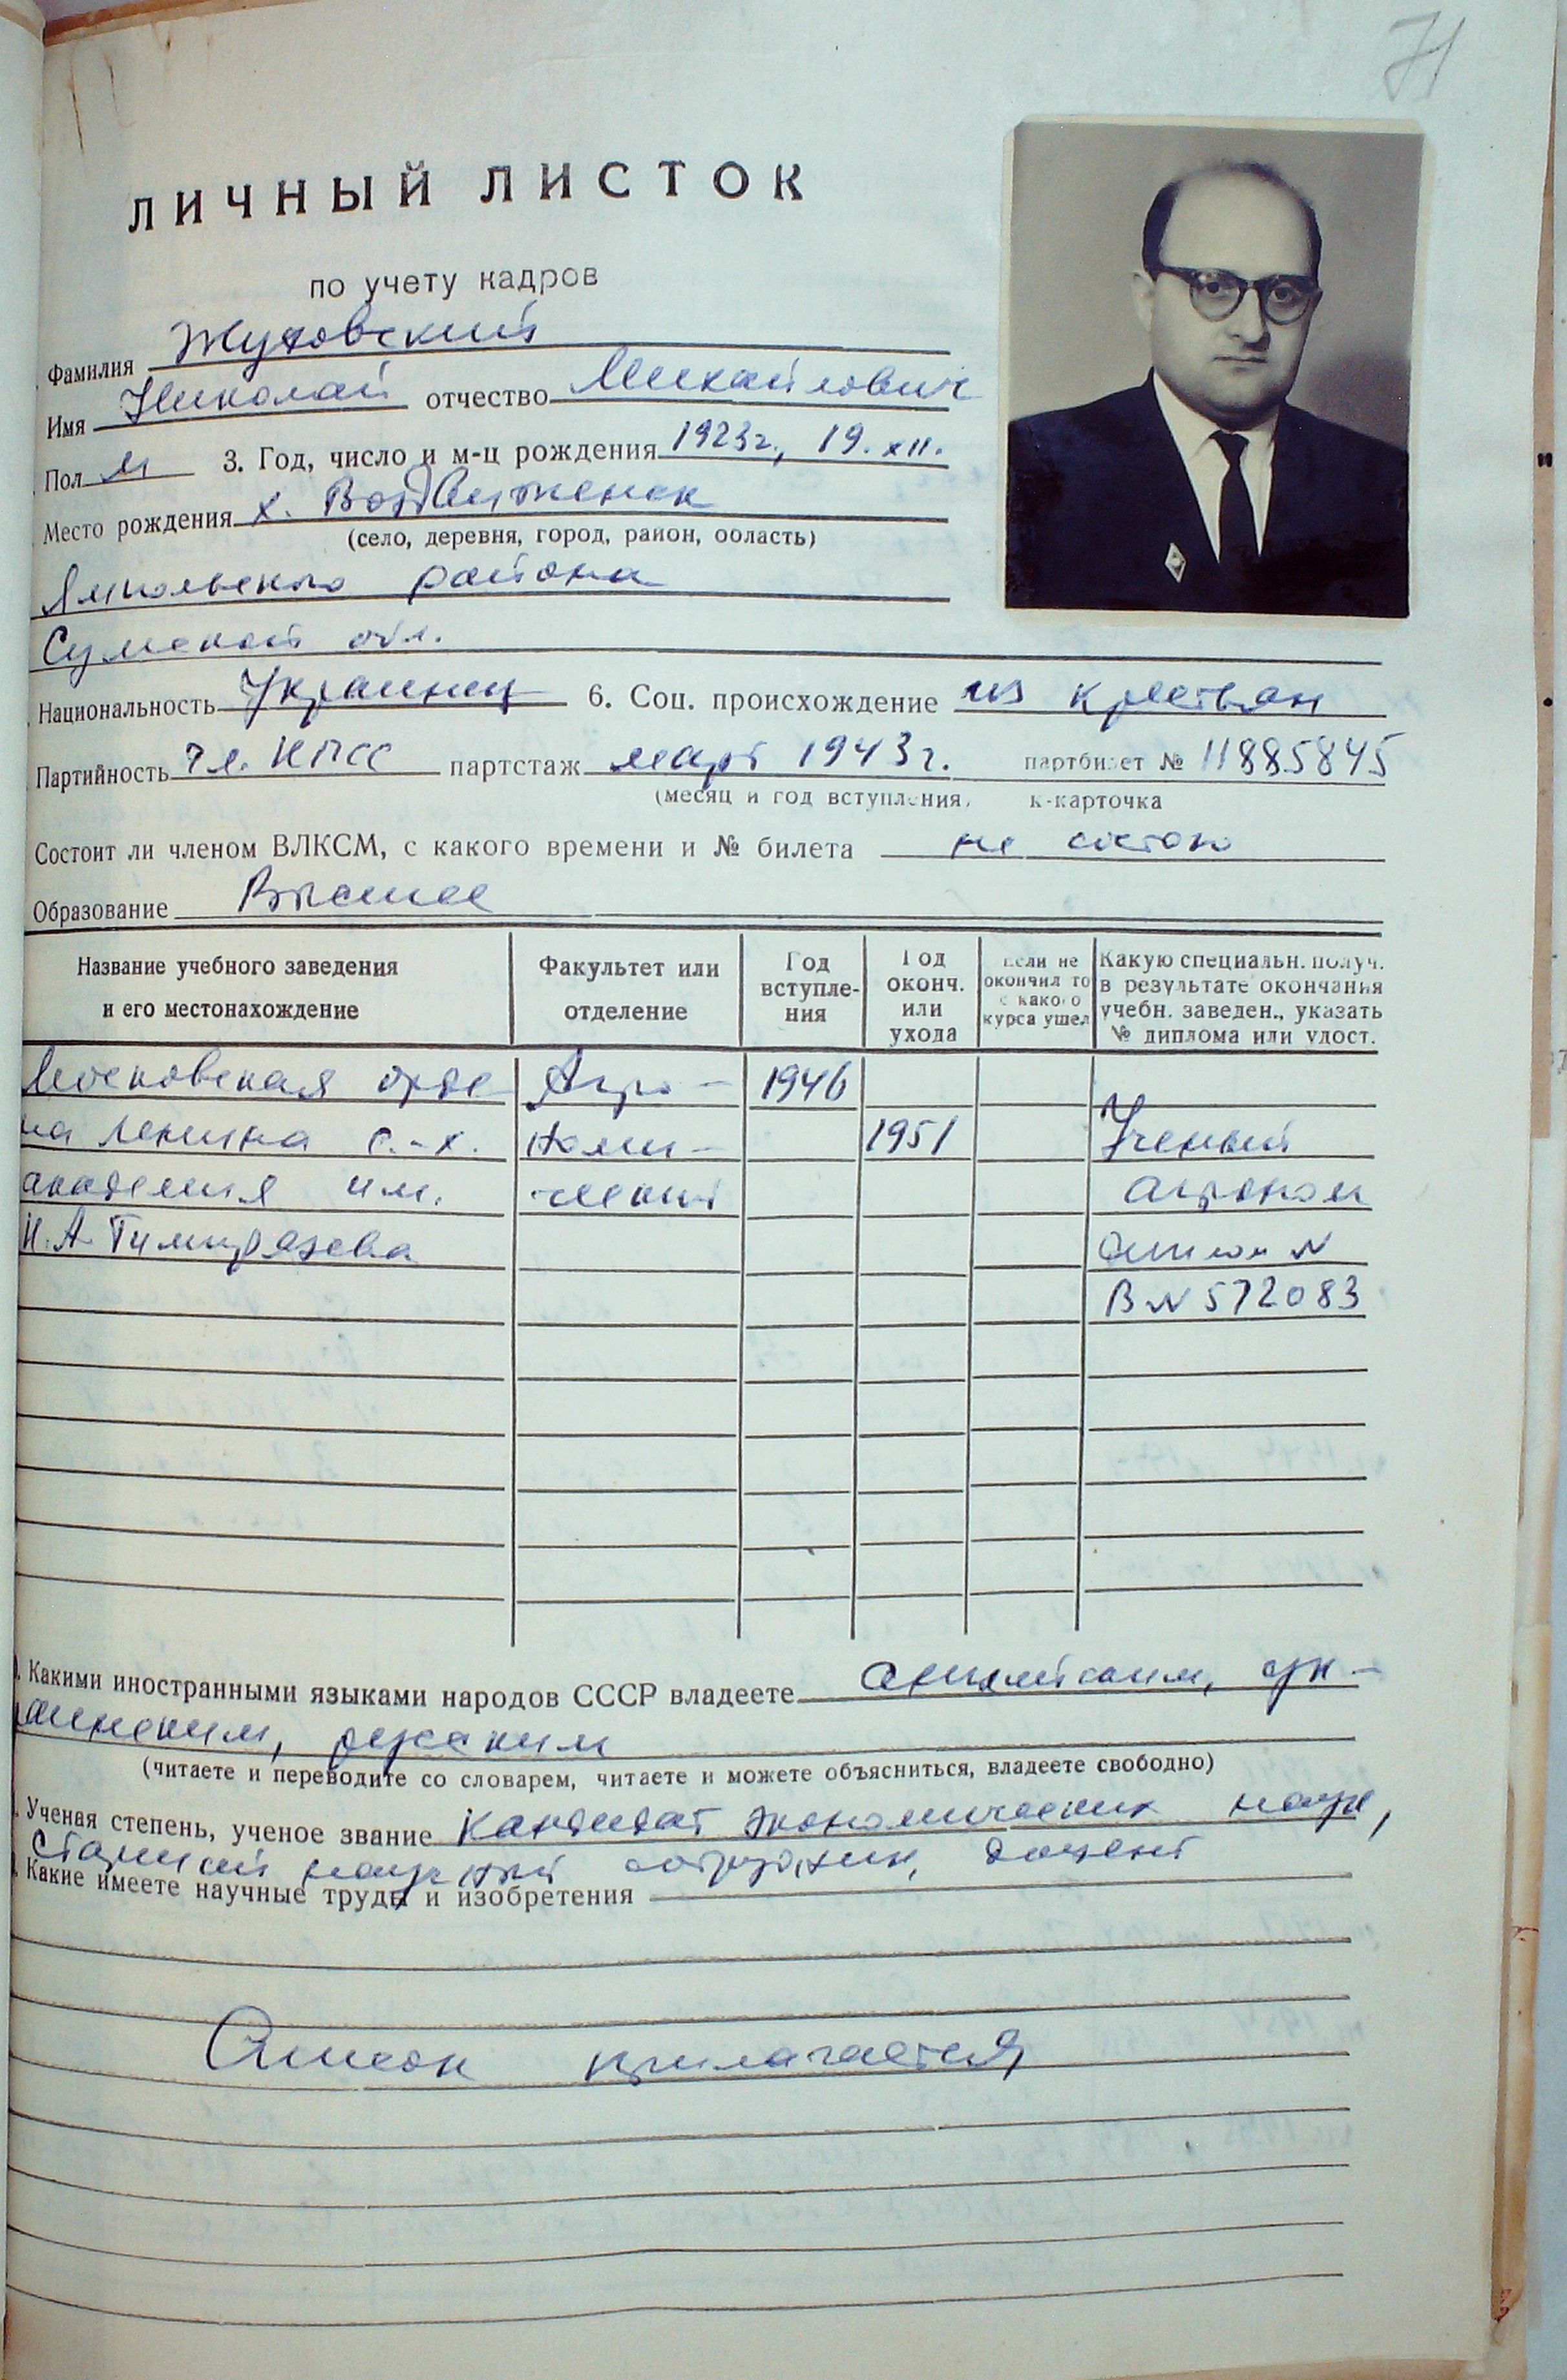 71
ЛИЧНЫЙ ЛИСТОК
по учету кадров
Фамилия Жуковский
Имя Николай отчество Михайлович
Пол М 3. Год, число и м-ц рождения 1923г., 19.XII.
Место рождения х. Воздвиженск
(село, деревня, город, район, область)
Ямпольского района
Сумской обл.
Национальность Украинец 6. Соц. происхождение из крестьян
Партийность чл. КПСС партстаж март 1943г. партбилет № 11885845
(месяц и год вступления, к-карточка
Состоит ли членом ВЛКСМ, с какого времени и № билета не состою
Образование Высшее
Название учебного заведения и его местонахождение
Факультет или отделение
Год вступле- ния
Год оконч. или ухода
Если не окончил то с какого курса ушел
Какую специальн. получ. в результате окончания учебн. заведен., указать № диплома или удост.
Московская орде Агро- 1946
на Ленина с.-х. номи- 1951 Ученый
академия им. ческий агроном
К.А. Тимирязева диплом №
В № 572083
. Какими иностранными языками народов СССР владеете английским, ук-
раинским, русским
(читаете и переводите со словарем, читаете и можете объясниться, владеете свободно)
. Ученая степень, ученое звание Кандидат экономических наук,
Старший научный сотрудник, доцент
. Какие имеете научные труды и изобретения
Список прилагается